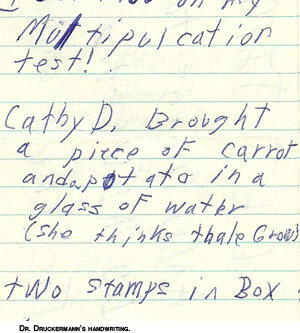 on my
Multipulcation
test!
Cathy D. Brought
a piece of carrot
and a potato in a
glass of water
(she thinks thale Grow)
two stamps in Box
DR. DRUCKERMANN'S HANDWRITING.